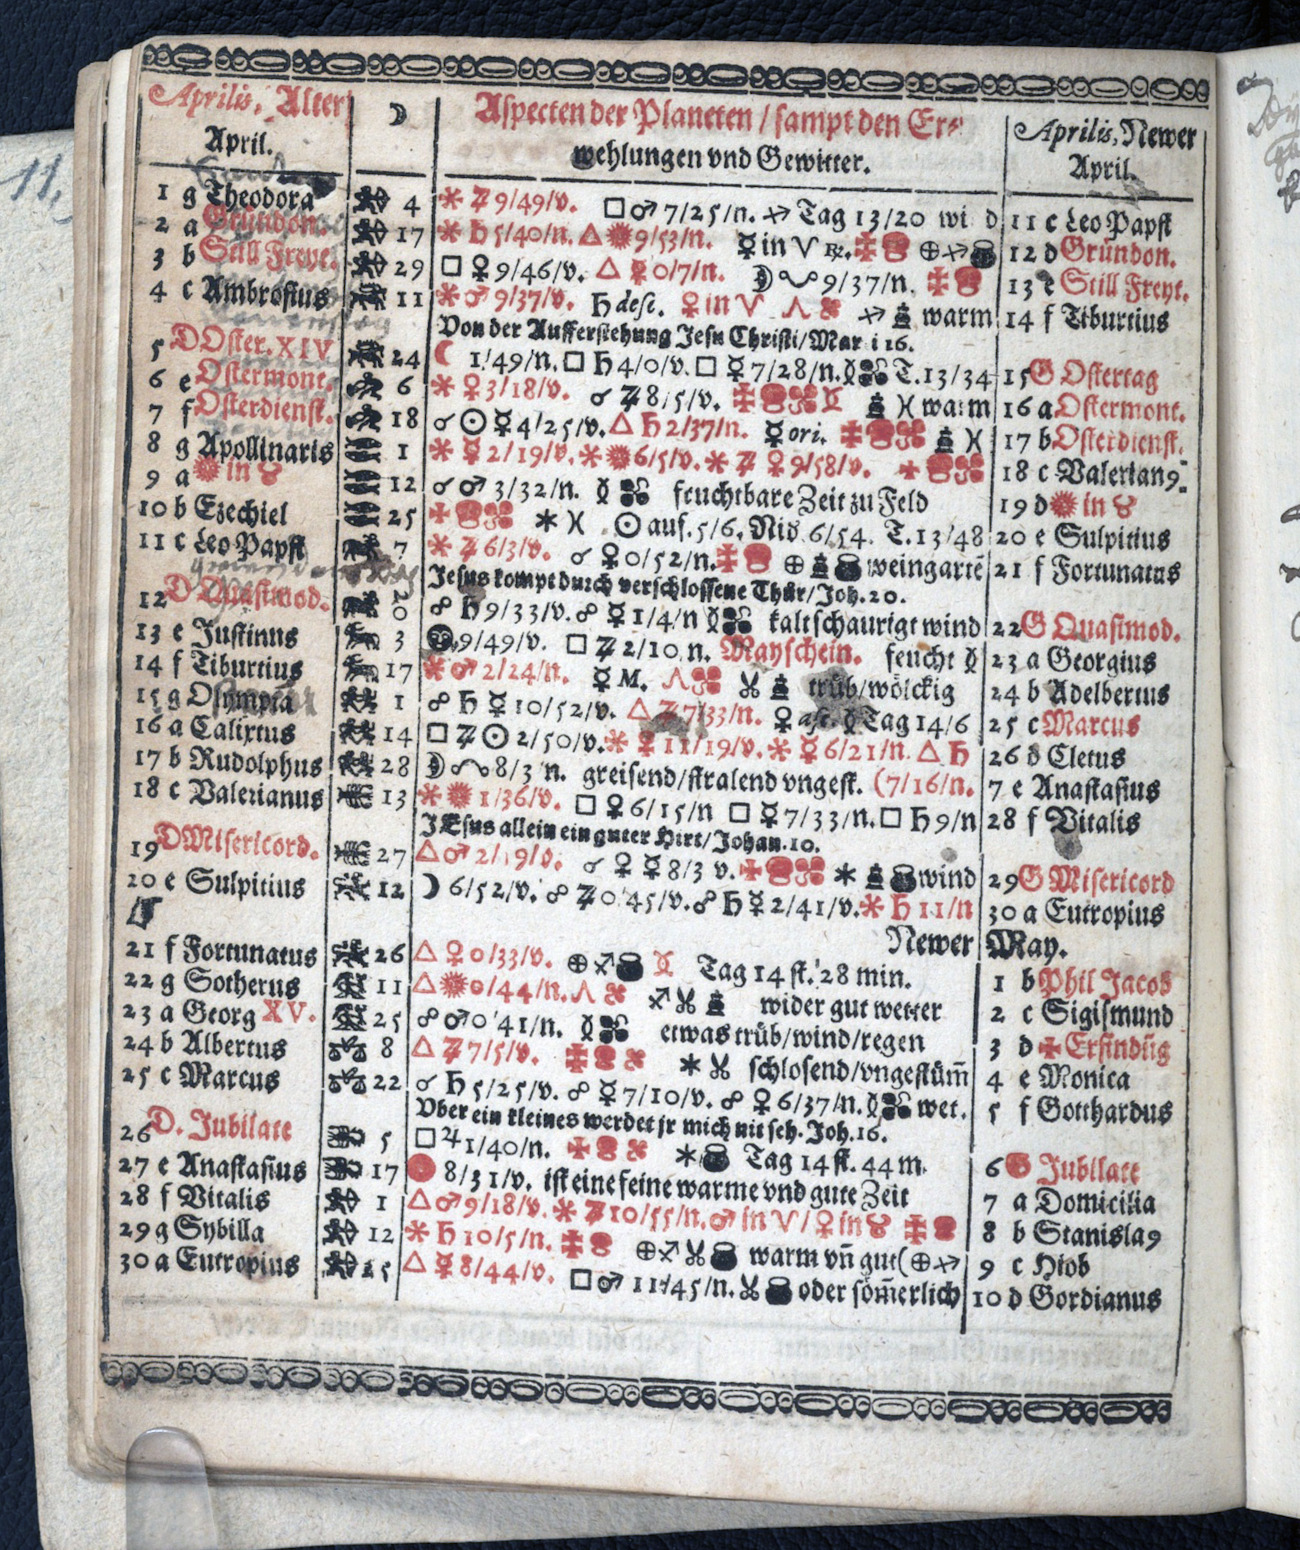 Aprilis, Alter ☽ Aspecten der Planeten / sampt den Er⸗ Aprilis, Newer
April. wehlungen vnd Gewitter. April.
1 g Theodora 4 ⚹ ♃ 9/49/v. □ ♂ 7/25/n. ♐ Tag 13/20 wi d 11 c Leo Papst
2 a Gründon. 17 ⚹ ♄ 5/40/n. △ ☀ 9/53/n. ☿ in ♈ ℞. 12 d Gründon.
3 b Still Freyt. 29 □ ♀ 9/46/v. △ ☿ 0/7/n. 9/37/n. 13 e Still Freyt.
4 c Ambrosius 11 ⚹ ♂ 9/37/v. ♄ desc. ♀ in ♈ warm 14 f Tiburtius
Von der Aufferstehung Jesu Christi/Mar i 16.
5 D Oster. XIV 24 ☾ 1/49/n. □ ♄ 4/0/v. □ ☿ 7/28/n. T. 13/34 15 G Ostertag
6 e Ostermont. 6 ⚹ ♀ 3/18/v. ☌ ♃ 8/5/v. ♓ warm 16 a Ostermont.
7 f Osterdienst. 18 ☌ ☉ ☿ 4/25/v. △ ♄ 2/37/n. ☿ ori. ♓ 17 b Osterdienst.
8 g Apollinaris 1 ⚹ ☿ 2/19/v. ⚹ ☀ 6/5/v. ⚹ ♃ ♀ 9/58/v. 18 c Valerian9.
9 a ☀ in ♉ 12 ☌ ♂ 3/32/n. feuchtbare Zeit zu Feld 19 d ☀ in ♉
10 b Ezechiel 25 ⚹ ♓ ☉ auf. 5/6. Nid. 6/54. T. 13/48 20 e Sulpitius
11 c Leo Papst 7 ⚹ ♃ 6/3/v. ☌ ♀ 0/52/n. ⊕ weingartē 21 f Fortunatus
Jesus kompt durch verschlossene Thür/Joh. 20.
12 D Quasimod. 20 ☍ ♄ 9/33/v. ☍ ☿ 1/4/n kalt schaurigt wind 22 G Quasimod.
13 e Justinus 3 9/49/v. □ ♃ 2/10 n. Mayschein. feucht 23 a Georgius
14 f Tiburtius 17 ⚹ ♂ 2/24/n. ☿ M. trüb/wölckig 24 b Adelbertus
15 g Olympia 1 ☍ ♄ ☿ 10/52/v. △ ♃ 7/33/n. ♀ asc. Tag 14/6 25 c Marcus
16 a Calixtus 14 □ ♃ ☉ 2/50/v. ⚹ ♀ 11/19/v. ⚹ ☿ 6/21/n. △ ♄ 26 d Cletus
17 b Rudolphus 28 8/3 n. greisend/stralend vngest. (7/16/n. 7 e Anastasius
18 c Valerianus 13 ⚹ ☀ 1/36/v. □ ♀ 6/15/n □ ☿ 7/33/n. □ ♄ 9/n 28 f Vitalis
JEsus allein ein guter Hirt/Johan. 10.
19 D Misericord. 27 △ ♂ 2/19/v. ☌ ♀ ☿ 8/3 v. wind 29 G Misericord
20 e Sulpitius 12 ☽ 6/52/v. ☍ ♃ 0/45/v. ☍ ♄ ☿ 2/41/v. ⚹ ♄ 11/n 30 a Eutropius
Newer May.
21 f Fortunatus 26 △ ♀ 0/33/v. ⊕ ♐ Tag 14 st. 28 min. 1 b Phil Jacob
22 g Sotherus 11 △ ☀ 0/44/n. ♐ wider gut wetter 2 c Sigismund
23 a Georg XV. 25 ☍ ♂ 0/41/n. etwas trüb/wind/regen 3 d ✠ Erfindūg
24 b Albertus 8 △ ♃ 7/5/v. schlosend/vngestüm̄ 4 e Monica
25 c Marcus 22 ☌ ♄ 5/25/v. ☍ ☿ 7/10/v. ☍ ♀ 6/37/n. wet. 5 f Gotthardus
Vber ein kleines werdet jr mich nit seh. Joh. 16.
26 D. Jubilate 5 □ ♃ 1/40/n. Tag 14 st. 44 m. 6 G Jubilate
27 e Anastasius 17 8/31/v. ist eine feine warme vnd gute Zeit 7 a Domicilia
28 f Vitalis 1 △ ♂ 9/18/v. ⚹ ♃ 10/55/n. ♂ in ♈/♀ in ♉ 8 b Stanisla9
29 g Sybilla 12 ⚹ ♄ 10/5/n. ⊕ ♐ warm vn̄ gut (⊕ ♐ 9 c Hiob
30 a Eutropius 25 △ ☿ 8/44/v. □ ♂ 11/45/n. oder söm̄erlich 10 d Gordianus
11.